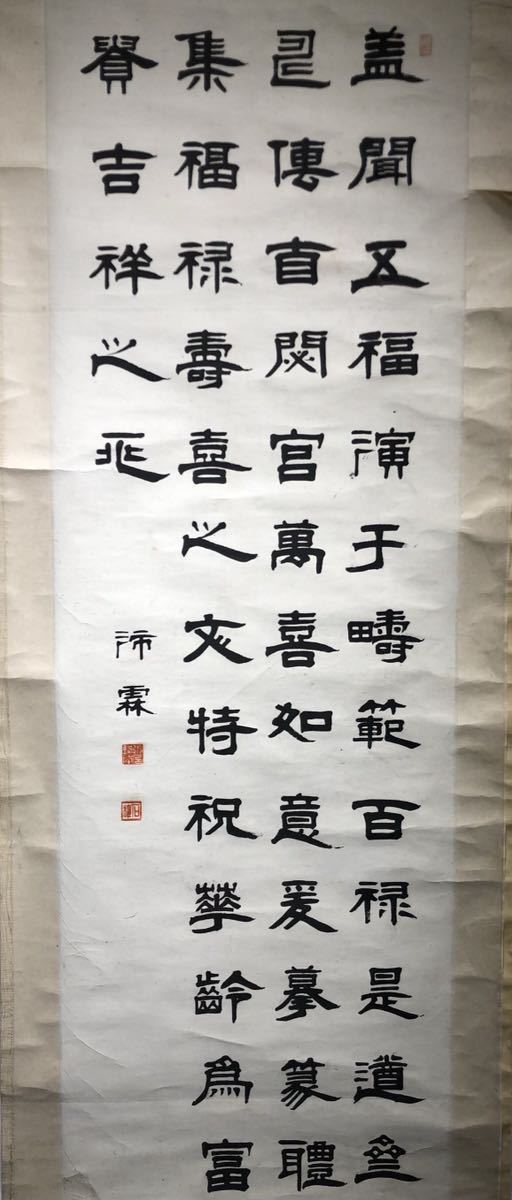 蓋聞五福演于疇範百禄是遒叄
㠯傳百閟宫萬喜如意爰摹篆體
集福禄壽喜之文特祝華齡為富
貴吉祥之兆
霖